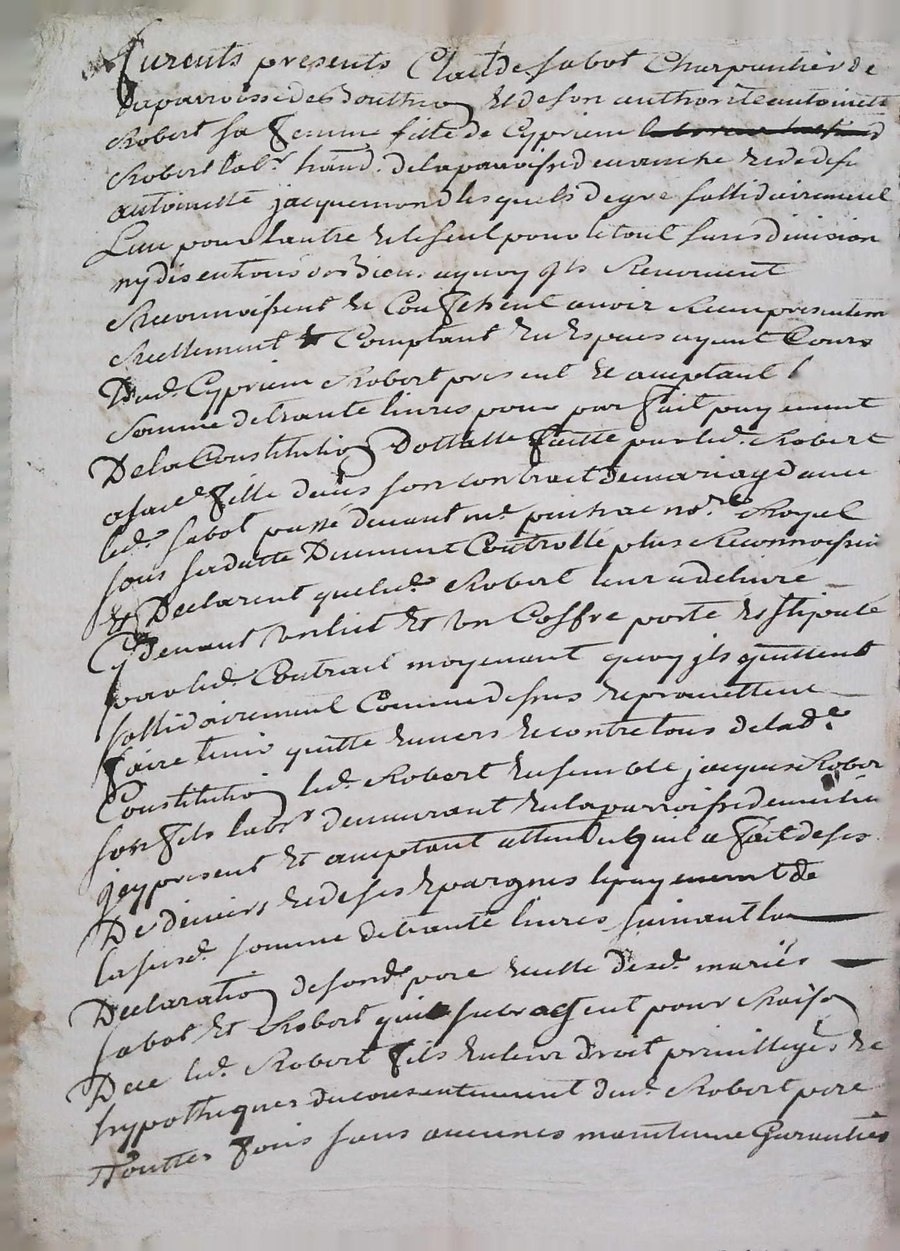 furents presents Claude Sabot Charpantier de
la parroisse de Bouthio et de son authorite antoinett
Robert sa femme fille de Cyprien
Robert lab.r hand. de la parroisse de et de deff.
antoinette jacquemond lesquels de gre sollidairement
Lun pour lautre et le seul pour le tout sans division
ny discution ordre a quoy ils Renoncent
Reconnoissent et Confessent avoir Receu presentem
Reellement & Comptant En Especes ayant Cours
Dud. Cyprien Robert present et acceptant l
Somme de trante livres pour parfait payement
De la Constitution Dottalle faitte par led. Robert
a sad.e fille dans son contract de mariage avec
led. Sabot passé devant me. no.re Royal
sous sa datte Duement Controllé plus Reconnoissen
Et Declarent que led. Robert leur a delivré
Cy devant un lict Et un Coffre porté et stipullé
par led. Contract moyenant quoy jls quittent
sollidairement Comme dessus et promettent
faire tenir quitte envers et contre tous de lad.e
Constitution led. Robert ensemble jacques Rober
son fils lab.r demeurant en la parroisse de
jcy present Et acceptant attendu quil a fait de ses
De deniers et de ses Epargnes le payement de
la susd. somme de trante livres suivant la
Declaration de sond. pere et celle desd. mariés
Sabot Et Robert qui subrogent pour Raison
De ce led. Robert fils en leur Droit privilleges et
hypotheques du consentement dud. Robert pere
Touttes fois sans aucunes maintenue Garanties